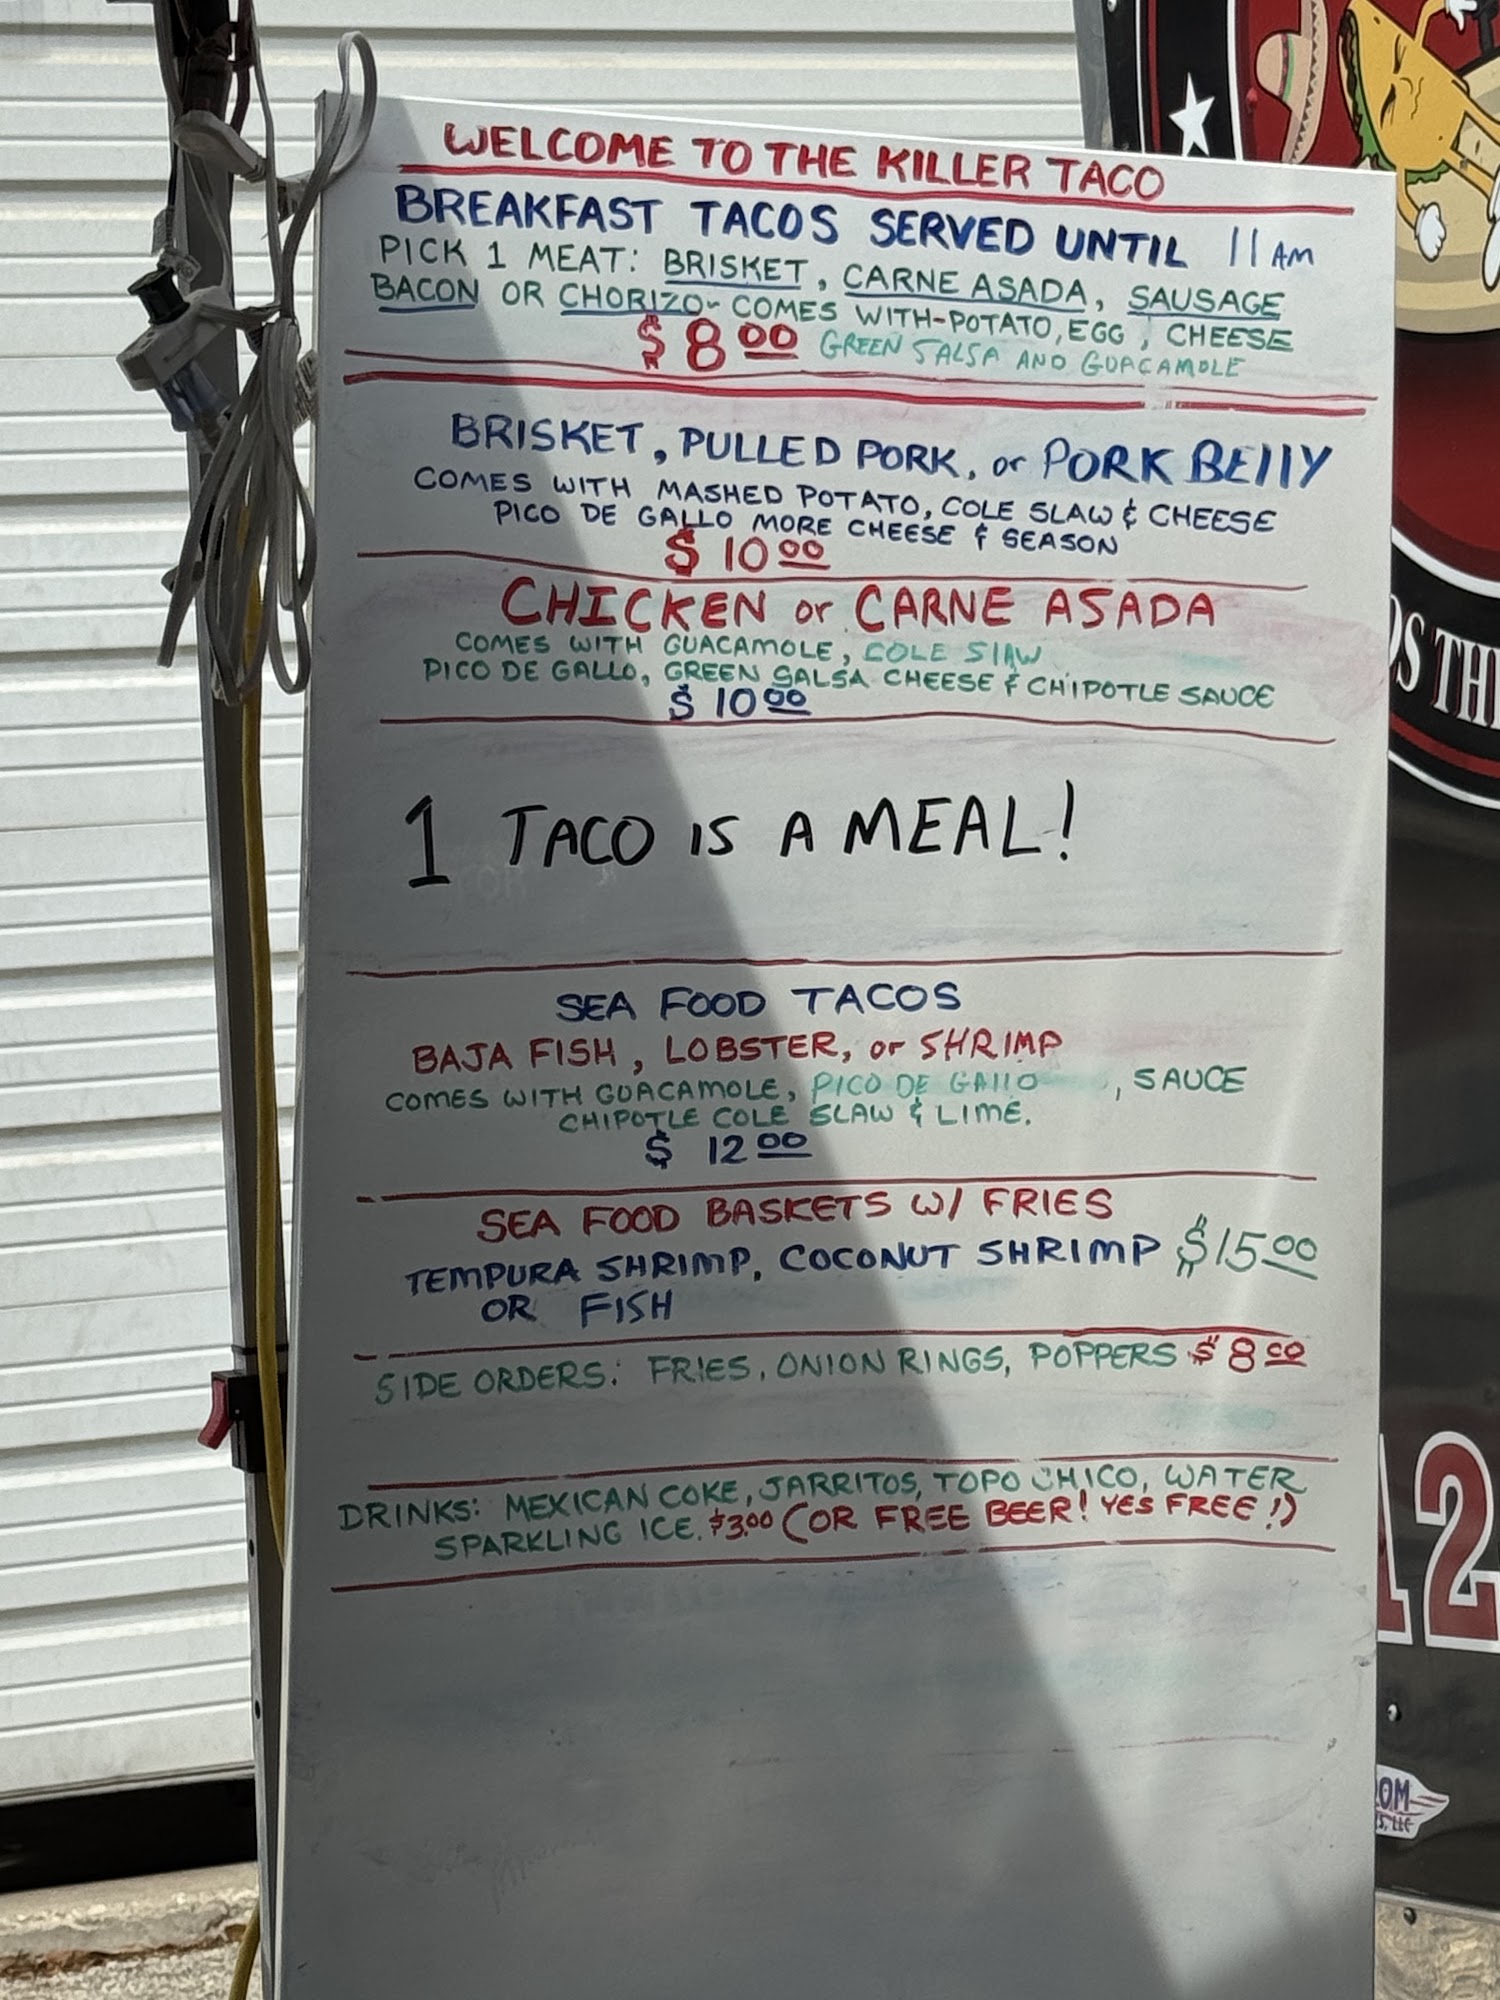 WELCOME TO THE KILLER TACO
BREAKFAST TACOS SERVED UNTIL 11 AM
PICK 1 MEAT: BRISKET, CARNE ASADA, SAUSAGE
BACON OR CHORIZO- COMES WITH-POTATO, EGG, CHEESE
$8.00 GREEN SALSA AND GUACAMOLE
BRISKET, PULLED PORK, or PORK BElly
COMES WITH MASHED POTATO, COLE SLAW & CHEESE
PICO DE GALLO MORE CHEESE & SEASON
$10.00
CHICKEN or CARNE ASADA
COMES WITH GUACAMOLE, COLE SlAW
PICO DE GALLO, GREEN SALSA CHEESE & CHIPOTLE SAUCE
$10.00
1 TACO IS A MEAL!
SEA FOOD TACOS
BAJA FISH, LOBSTER, or SHRIMP
COMES WITH GUACAMOLE, PICO DE GAllO , SAUCE
CHIPOTLE COLE SLAW & LIME.
$12.00
SEA FOOD BASKETS W/ FRIES
TEMPURA SHRIMP, COCONUT SHRIMP $15.00
OR FISH
SIDE ORDERS: FRIES, ONION RINGS, POPPERS $8.00
DRINKS: MEXICAN COKE, JARRITOS, TOPO CHICO, WATER
SPARKLING ICE. $3.00 (OR FREE BEER! YES FREE!)
OS THE
12
OM
S, LLC